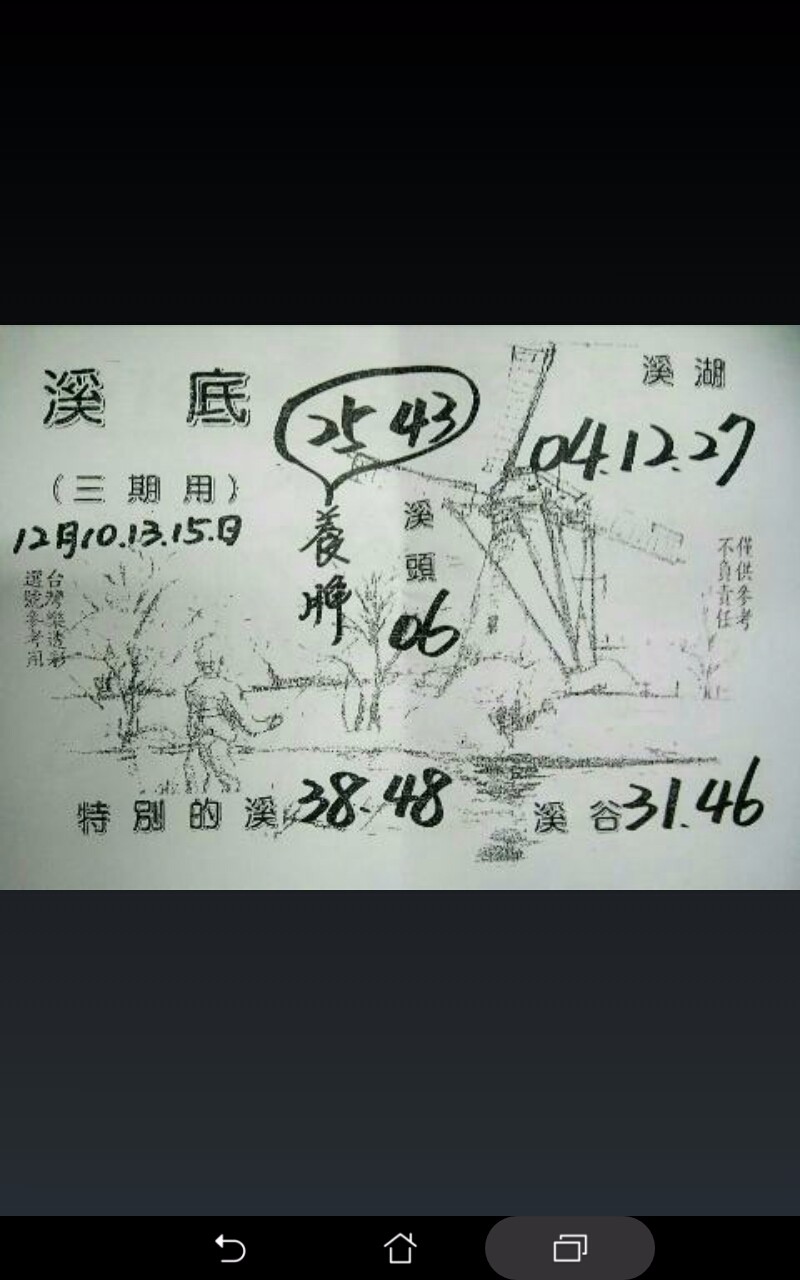 溪底
(三期用)
12月10.13.15.日
台灣樂透彩
選號參考用
25 43
養牌
溪頭
06
溪湖
04.12.27
僅供參考
不負責任
特別的溪 38.48
溪谷 31.46